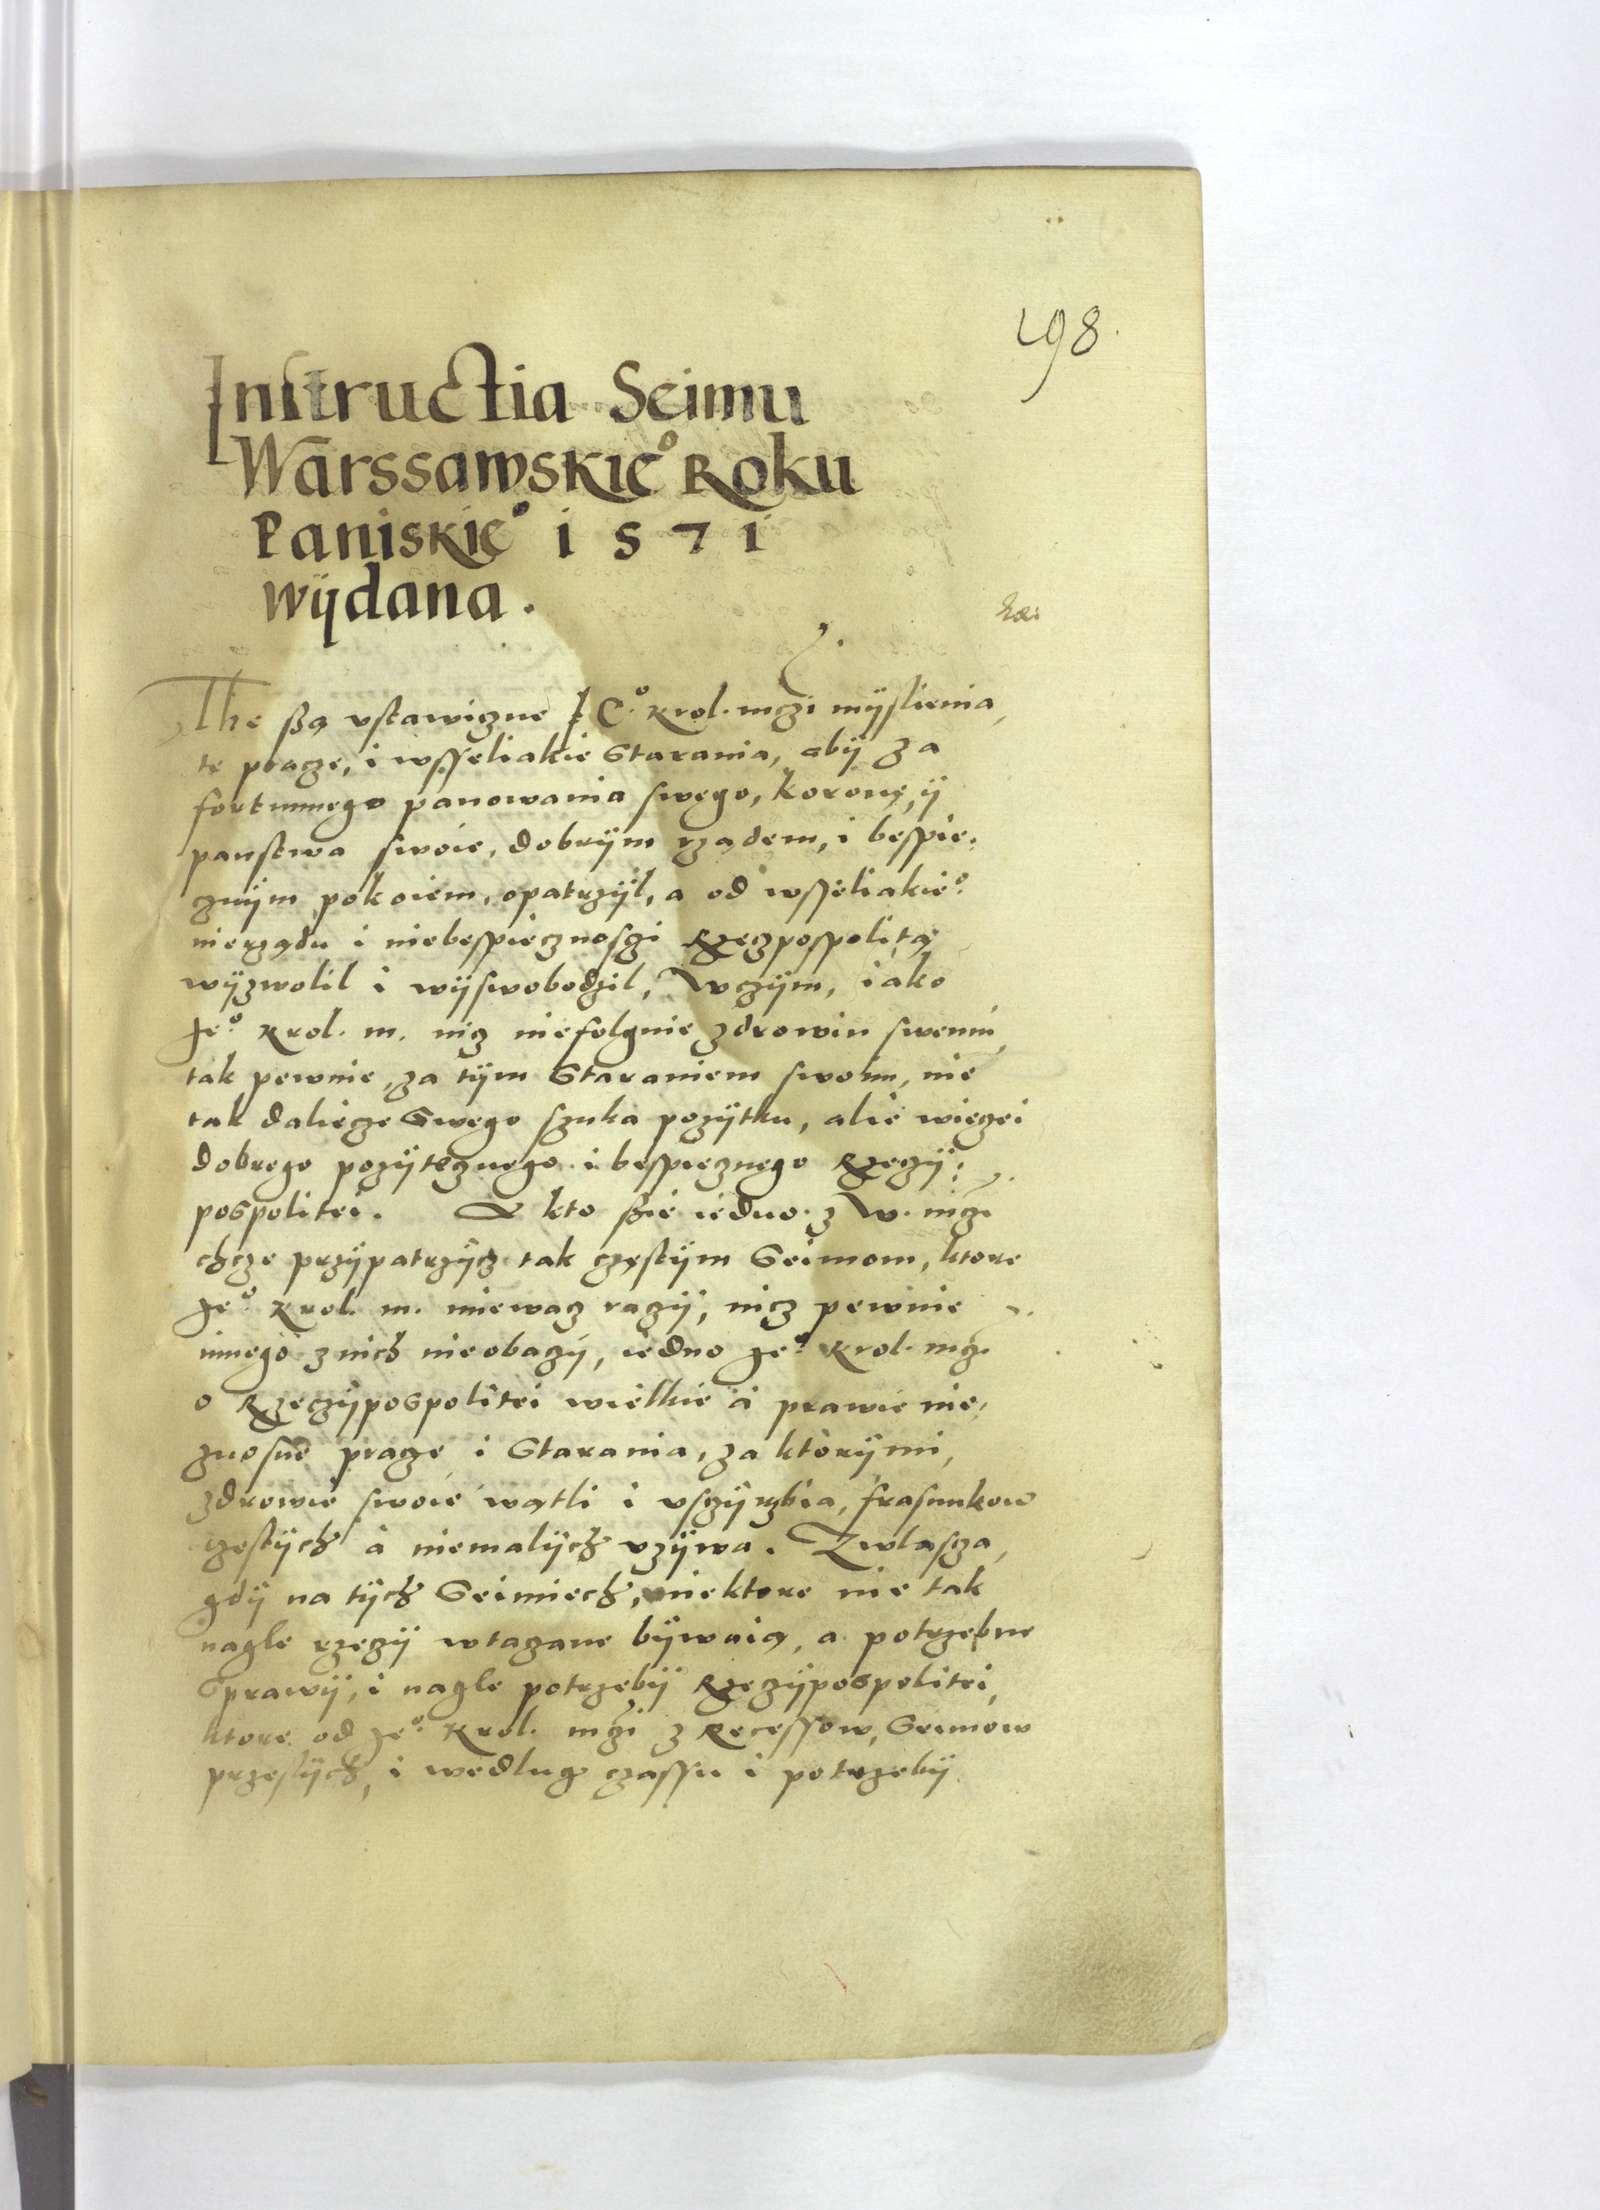 198.
Instructia Seimu
Warssawskieº Roku
Paniskieº 1571
wÿdana.
The ssą vstawiczne Ieº. Krol. mczi mÿslienia,
te pracze, i wsseliakie Starania, abÿ za
fortunnego panowania swego, koronę, ÿ
panstwa swoie, dobrÿm rządem, i bespie,
cznÿm pokoiem, opatrzÿl, a od wsseliakieº.
nierządu i niebespiecznosczi Rzeczpospolitą
wÿzwolil i wÿswobodzil, Wczÿm, iako
Jeº. Krol. m. nicz niefolguie zdrowiu swemu,
tak pewnie, za tÿm Staraniem swoim, nie
tak daliecze Swego szuka pozÿtku, alie wieczei
dobrego pozÿtecznego i bespiecznego Rzeczÿ:
pospolitei. A kto ssie iedno z W. mcz.
chcze przÿpatrzÿcz tak częstÿm Seimom, ktore
Jeº. Krol. m. miewacz raczÿ, nicz pewnie
innego z nich nieobaczÿ, iedno Jeº. Krol. mcz.
o Rzeczÿpospolitei wielkie à prawie nie,
znosne pracze i Starania, za ktorÿmi,
zdrowie swoie wątli i vsczÿrbia, frasunkow
czestÿch à niemalÿch vzÿwa. Zwlascza,
gdÿ na tÿch Seimiech, niektore nie tak
nagle rzeczÿ wtaczane bÿwaią, a potrzebne
Sprawÿ, i nagle potrzebÿ Rzeczÿpospolitei,
ktore od Jeº. Krol. mczi z Recessow, Seimow
przeslÿch, i wedlug czassu i potrzebÿ